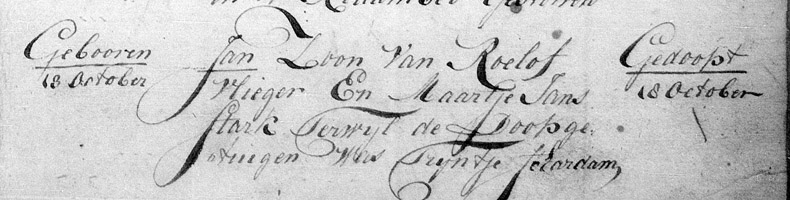 Gebooren
18 October
Jan Zoon Van Roelof
Vlieger En Maartje Jans
Stark Terwyl de Doopge-
tuigen Was Tryntje
Gedoopt
18 October